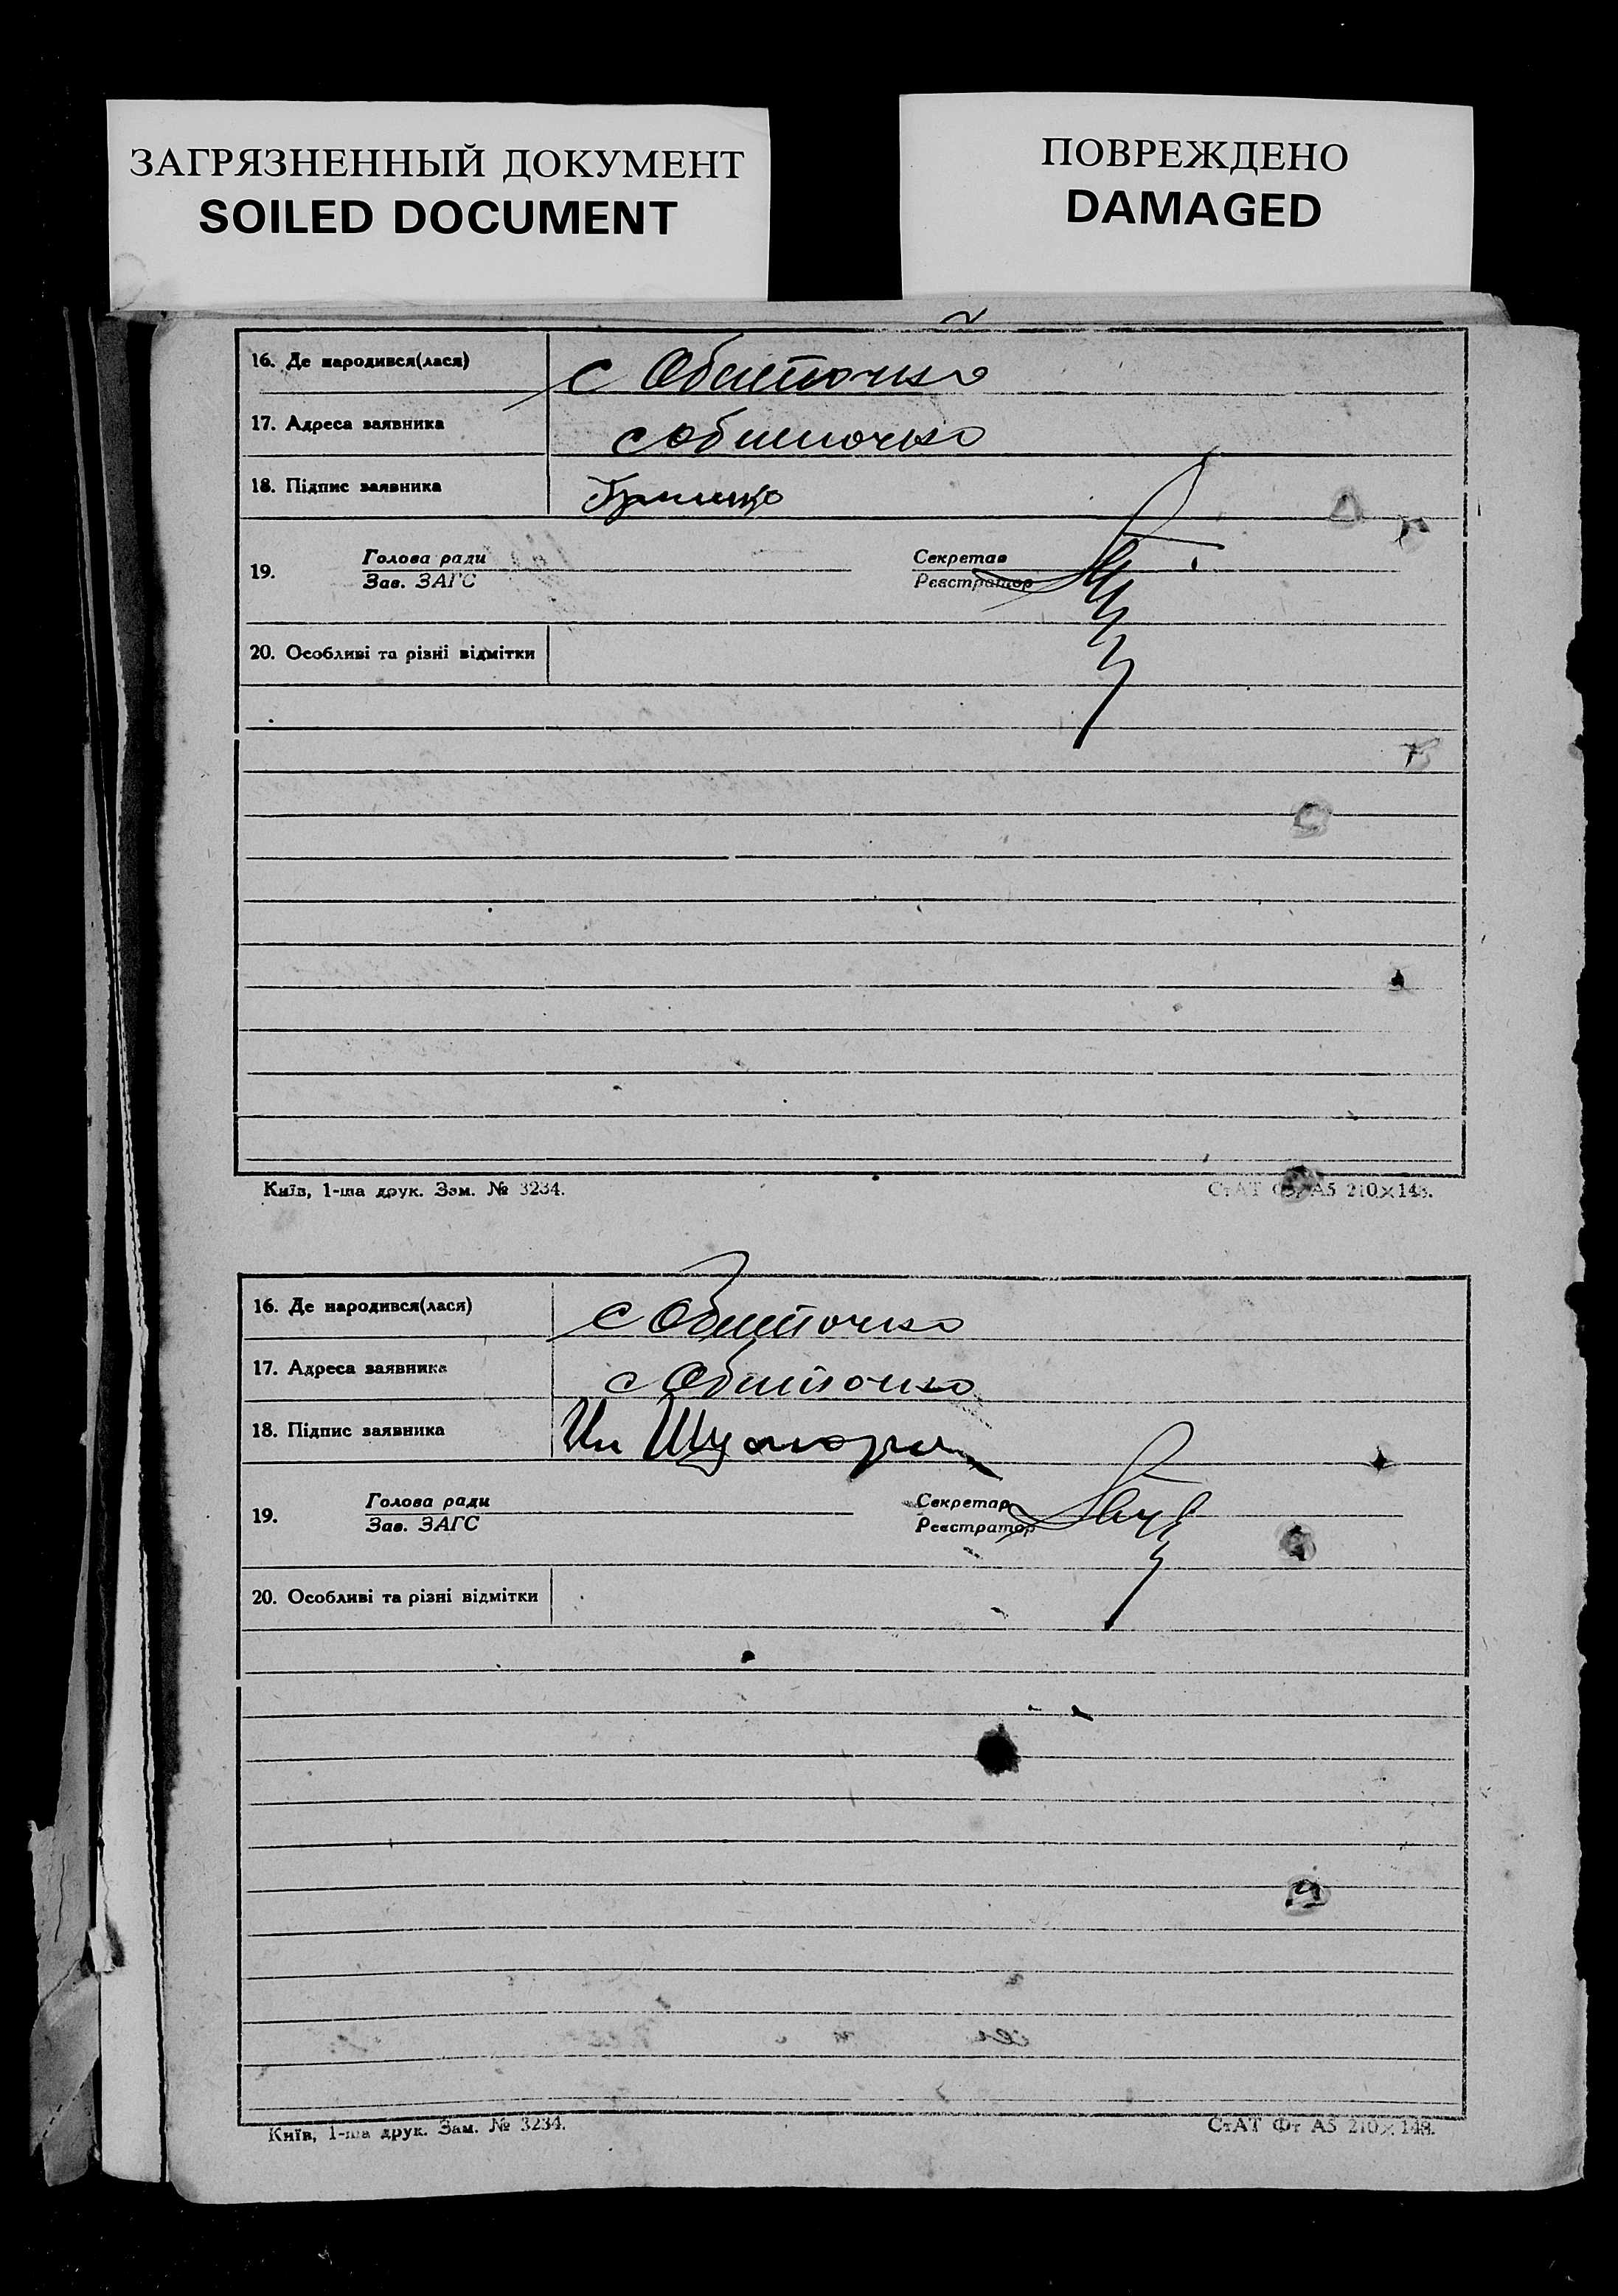 ЗАГРЯЗНЕННЫЙ ДОКУМЕНТ
SOILED DOCUMENT
ПОВРЕЖДЕНО
DAMAGED
16. Де народився(лася) с Обиточна
17. Адреса заявника с Обиточна
18. Підпис заявника
19. Голова ради Секретар
Зав. ЗАГС Реєстратор
20. Особливі та різні відмітки
Київ, 1-ша друк. Зам. № 3234. СтАТ Фт А5 210×148.
16. Де народився(лася) с Обиточна
17. Адреса заявника с Обиточна
18. Підпис заявника
19. Голова ради Секретар
Зав. ЗАГС Реєстратор
20. Особливі та різні відмітки
Київ, 1-ша друк. Зам. № 3234. СтАТ Фт А5 210×148.